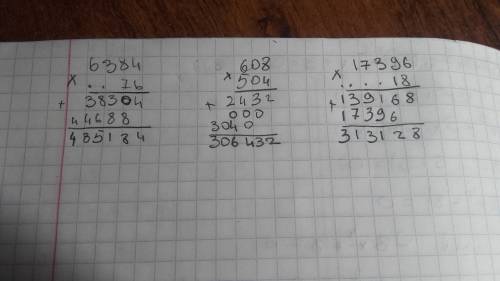 6384
× . . 76
+ 38304
44688
485184
608
× 504
+ 2432
000
3040
306432
17396
× . . . . 18
+ 139168
17396
313128